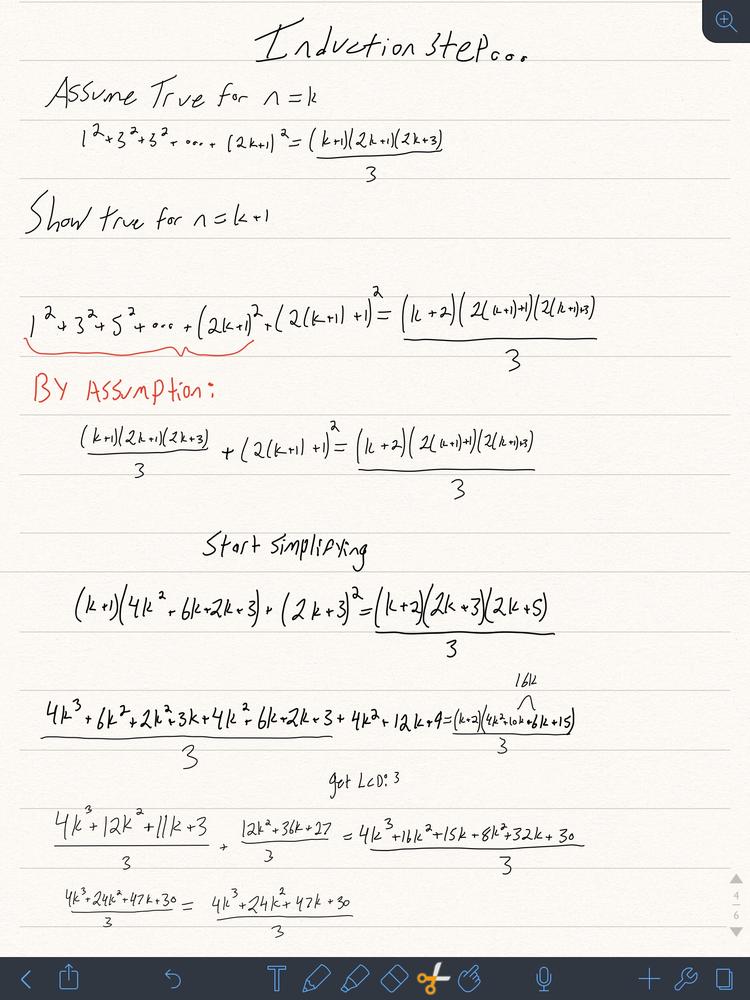 Induction Step...
Assume True for n=k
1²+3²+3²+....+(2k+1)²=(k+1)(2k+1)(2k+3)
3
Show true for n=k+1
1²+3²+5²+...+(2k+1)²+(2(k+1)+1)²=(k+2)(2(k+1)+1)(2(k+1)+3)
3
BY Assumption:
(k+1)(2k+1)(2k+3)/3 + (2(k+1)+1)²=(k+2)(2(k+1)+1)(2(k+1)+3)
3
Start simplifying
(k+1)(4k²+6k+2k+3)+(2k+3)²=(k+2)(2k+3)(2k+5)
3
16k
4k³+6k²+2k²+3k+4k²+6k+2k+3+4k²+12k+9=(k+2)(4k²+10k+6k+15)
3 3
get LCD: 3
4k³+12k²+11k+3/3 + 12k²+36k+27/3 = 4k³+16k²+15k+8k²+32k+30
3
4k³+24k²+47k+30/3 = 4k³+24k²+47k+30
3
4
6
T